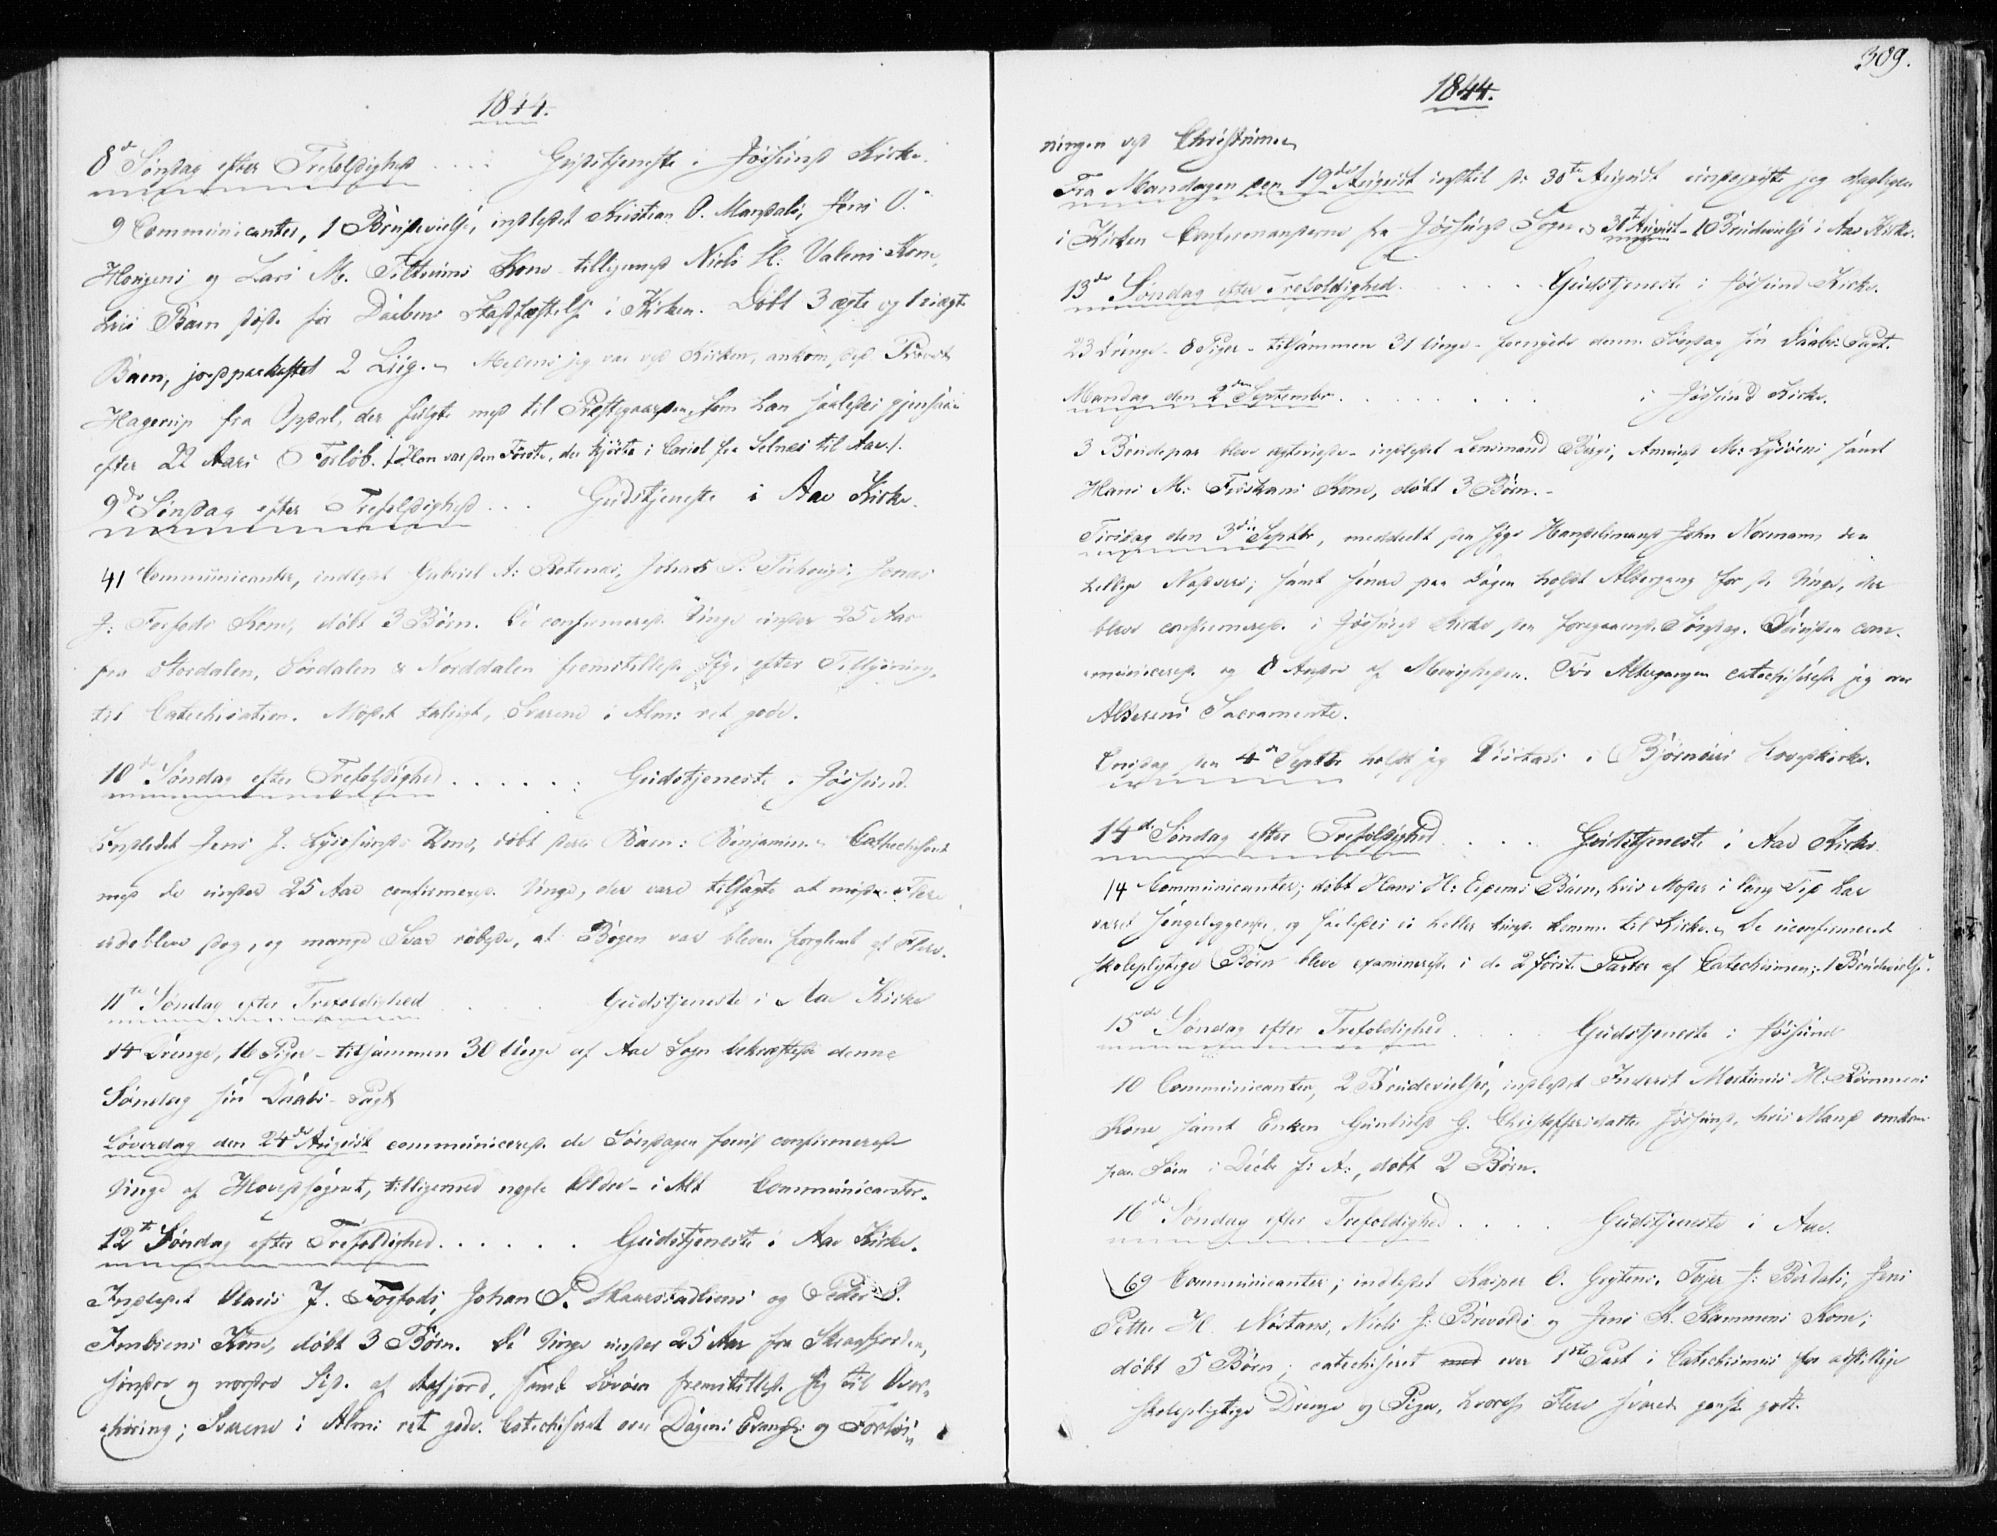 1844.
8de Søndag efter Trefoldighed . . . Gudstjeneste i Jøssund Kirke.
9 Communicanter, 1 Brudevielse, indledet Kristian O. Mandals, Jens O.
Hougens og Lars M. Kone tilligemed Niels H. Valens Kone,
hvis Barn døde før Daabens Stadfæstelse i Kirken. Døbt 3 ægte og 1 uægte
Barn, jordpaakastet 2 Liig. Medens jeg var ved Kirken, ankom Provst
Hagerup fra Opdal, der fulgte med til Præstegaarden, som han saaledes gjensaae
efter 22 Aars Forløb. /: Han var den Første, der kjørte i Cariol fra Selnes til Aae :/.
9de Søndag efter Trefoldighed . . . Gudstjeneste i Aae Kirke.
41 Communicanter, indledet Gabriel A. Johan P. Jonas
J. Kone, døbt 3 Børn. De confirmerede Unge under 25 Aar
fra Stordalen, Sørdalen & Norddalen fremstillede sig, efter Tilsigning,
til Catechisation. Mødet talrigt, Svarene i Alm: ret gode.
10de Søndag efter Trefoldighed . . . . . . Gudstjeneste i Jøssund.
Indledet Jens J. Lysøsunds Kone, døbt deres Barn: Benjamin. Catechiseret
med de under 25 Aar confirmerede Unge, der vare tilsagte at møde. Flere
udebleve dog, og mange Svar røbede, at Bogen var bleven forglemt af Flere.
11te Søndag efter Trefoldighed . . . Gudstjeneste i Aae Kirke
14 Drenge, 16 Piger - tilsammen 30 Unge af Aae Sogn bekræftede denne
Søndag sin Daabs-Pagt
Løverdag den 24de August communicerede de Søndagen forud confirmerede
Unge af Hovedsognet, tilligemed nogle Ældre - i Alt Communicanter.
12te Søndag efter Trefoldighed . . . . . . Gudstjeneste i Aae Kirke.
Indledet Olaus J. Johan P. Skaarstadliens og Peder
Kone, døbt 3 Børn. De Unge under 25 Aar fra Skraafjorden,
søndre og nordre Side af Aafjord, samt fremstillede sig til Over-
høring; Svarene i Alm: ret gode. Catechiseret over Dagens Evang: og
309.
1844.
ningen ved Christumen
Fra Mandagen den 19de August indtil d: 30te August underviste jeg dagligen
i Kirken Confirmanderne fra Jøssund Sogn. 30te August - 1 Brudevielse i Aae Kirke.
13de Søndag efter Trefoldighed . . . . . . Gudstjeneste i Jøssund Kirke.
23 Drenge - 8 Piger - tilsammen 31 Unge - fornyede denne Søndag sin Daabs Pagt.
Mandag den 2den September . . . . . . . . i Jøssund Kirke.
3 Brudepar bleve ægteviede - indledet Lensmand Bergs, Amund M: Lysøens samt
Hans M: Kone, døbt 3 Børn. -
Tirsdag den 3die Septbr, meddeelt den syge Handelsmand John Normann den
hellige Nadvere; samt senere paa Dagen holdt Altergang for de Unge, der
bleve confirmerede i Jøssund Kirke den foregaaende Søndag. Desuden com-
municerede og 8 Andre af Menigheden. Før Altergangen catechiserede jeg over
Alterens Sacramente.
Onsdag den 4de Septbr holdt jeg Visitats i Bjørnørs Hovedkirke.
14de Søndag efter Trefoldighed . . . . Gudstjeneste i Aae Kirke.
14 Communicanter; døbt Hans H: Barn, hvis Moder i lang Tid har
været sengeliggende, og saaledes ei heller kunde komme til Kirke. De uconfirmerede
skolepligtige Børn bleve examinerede i de 2 første Parter af Catechismen; 1 Brudevielse.
15de Søndag efter Trefoldighed . . . Gudstjeneste i Jøssund
10 Communicanter, 2 Brudevielser, indledet Inderst Martinus H:
Kone samt Enken Gunhild G. Christophersdatter Jøssund, hvis Mand omkom
paa Søen i Decbr f: A:, døbt 2 Børn.
16de Søndag efter Trefoldighed . . . . Gudstjeneste i Aae.
69 Communicanter; indledet Kasper O. J: Jens
Petter H. Niels J: og Jens K. Kone;
døbt 5 Børn; catechiseret over 1ste Part i Catechismus for adskillige
skolepligtige Drenge og Piger, hvoraf Flere svarede ganske godt.